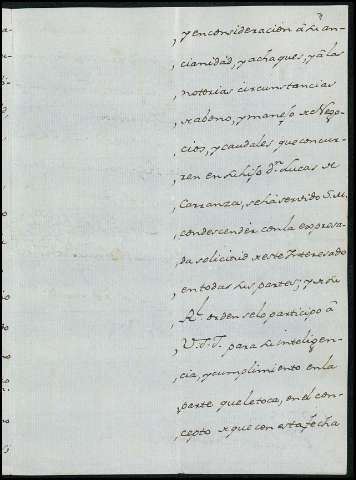 , y en consideracion â su an-
, cianidad, y achaques, y â las
, notorias circunstancias
, de abono, y manejo de Nego-
, cios, y caudales que concur-
, ren en su hijo dⁿ. Lucas de
, Carranza, se ha servido S.M.
, condescender con la expresa-
, da solicitud de este Interesado
, en todas sus partes; y de su
, Rˡ. orden se lo participo â
, V.S.S. para su inteligen-
, cia, y cumplimiento en la
, parte que le toca, en el con-
, cepto de que con esta fecha